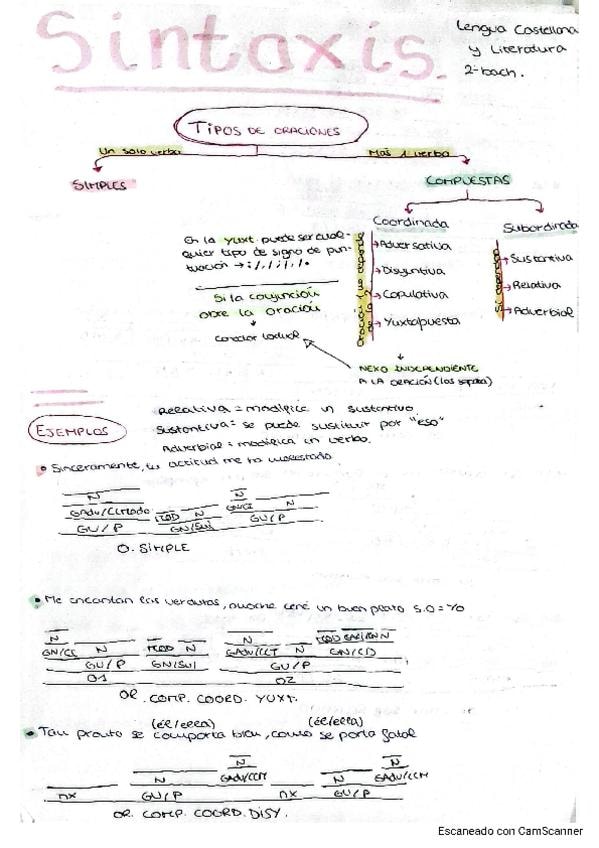 Sintaxis.
Lengua Castellana
y Literatura
2-bach.
TIPOS DE ORACIONES
Un solo verbo
Más 1 verbo
SIMPLES
COMPUESTAS
Coordinada
Subordinada
En la yuxt. puede ser cual-
quier tipo de signo de pun-
tuación → : / , / ; / . / •
Si la conjunción
abre la oración
Conector textual
→ Adversativa
→ Disyuntiva
→ Copulativa
→ Yuxtapuesta
si depende
→ Sustantiva
→ Relativa
→ Adverbial
NEXO INDEPENDIENTE
A LA ORACIÓN (las separa)
EJEMPLOS
Relativa = modifica un sustantivo.
Sustantiva = se puede sustituir por "eso"
Adverbial = modifica un verbo.
• Sinceramente, tu actitud me ha molestado.
N
N N
GAdv/CCModo MOD N GN/CI N
GV/P GN/Suj GV/P
O. SIMPLE
• Me encantan las verduras, anoche cené un buen plato S.O = Yo
N N
GN/CI N MOD N GAdv/CCT N GN/CD
GV/P GN/Suj GV/P
O1 O2
OR. COMP. COORD. YUXT.
(él/ella) (él/ella)
• Tan pronto se comporta bien, como se porta fatal
N N
N GAdv/CCM N GAdv/CCM
nx GV/P nx GV/P
OR. COMP. COORD. DISY.
Escaneado con CamScanner